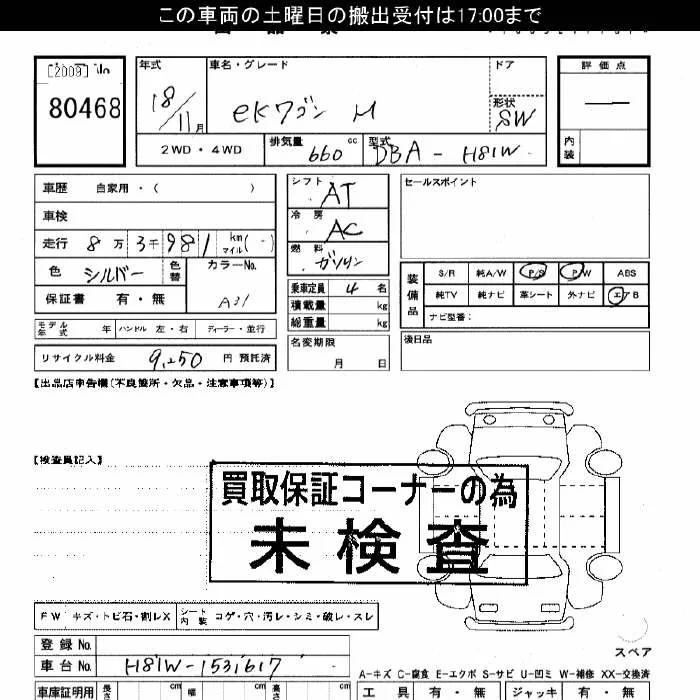 この車両の土曜日の搬出受付は17:00まで
[2009] No
80468
年式 車名・グレード ドア
18/11月 eKワゴン M
形状 SW
2WD・4WD 排気量 660cc 型式 DBA-H81W
評価点
—
内装
車歴 自家用・( )
車検
走行 8万3千981km マイル(-)
色 シルバー 色替 カラーNo. A31
保証書 有・無
モデル年式 年 ハンドル 左・右 ディーラー・並行
リサイクル料金 9,250円 預託済
シフト AT
冷房 AC
燃料 ガソリン
乗車定員 4名
積載量 kg
総重量 kg
名変期限
月 日
セールスポイント
装備品
S/R 純A/W P/S P/W ABS
純TV 純ナビ 革シート 外ナビ エアB
ナビ型番:
後日品
【出品店申告欄(不良箇所・欠品・注意事項等)】
【検査員記入】
買取保証コーナーの為
未検査
FW キズ・トビ石・割レX シート内装 コゲ・穴・汚レ・シミ・破レ・スレ
登録No.
車台No. H81W-1531617
スペア
A-キズ C-腐食 E-エクボ S-サビ U-凹ミ W-補修 XX-交換済
車庫証明用 長さ cm 幅 cm cm
工具 有・無 ジャッキ 有・無